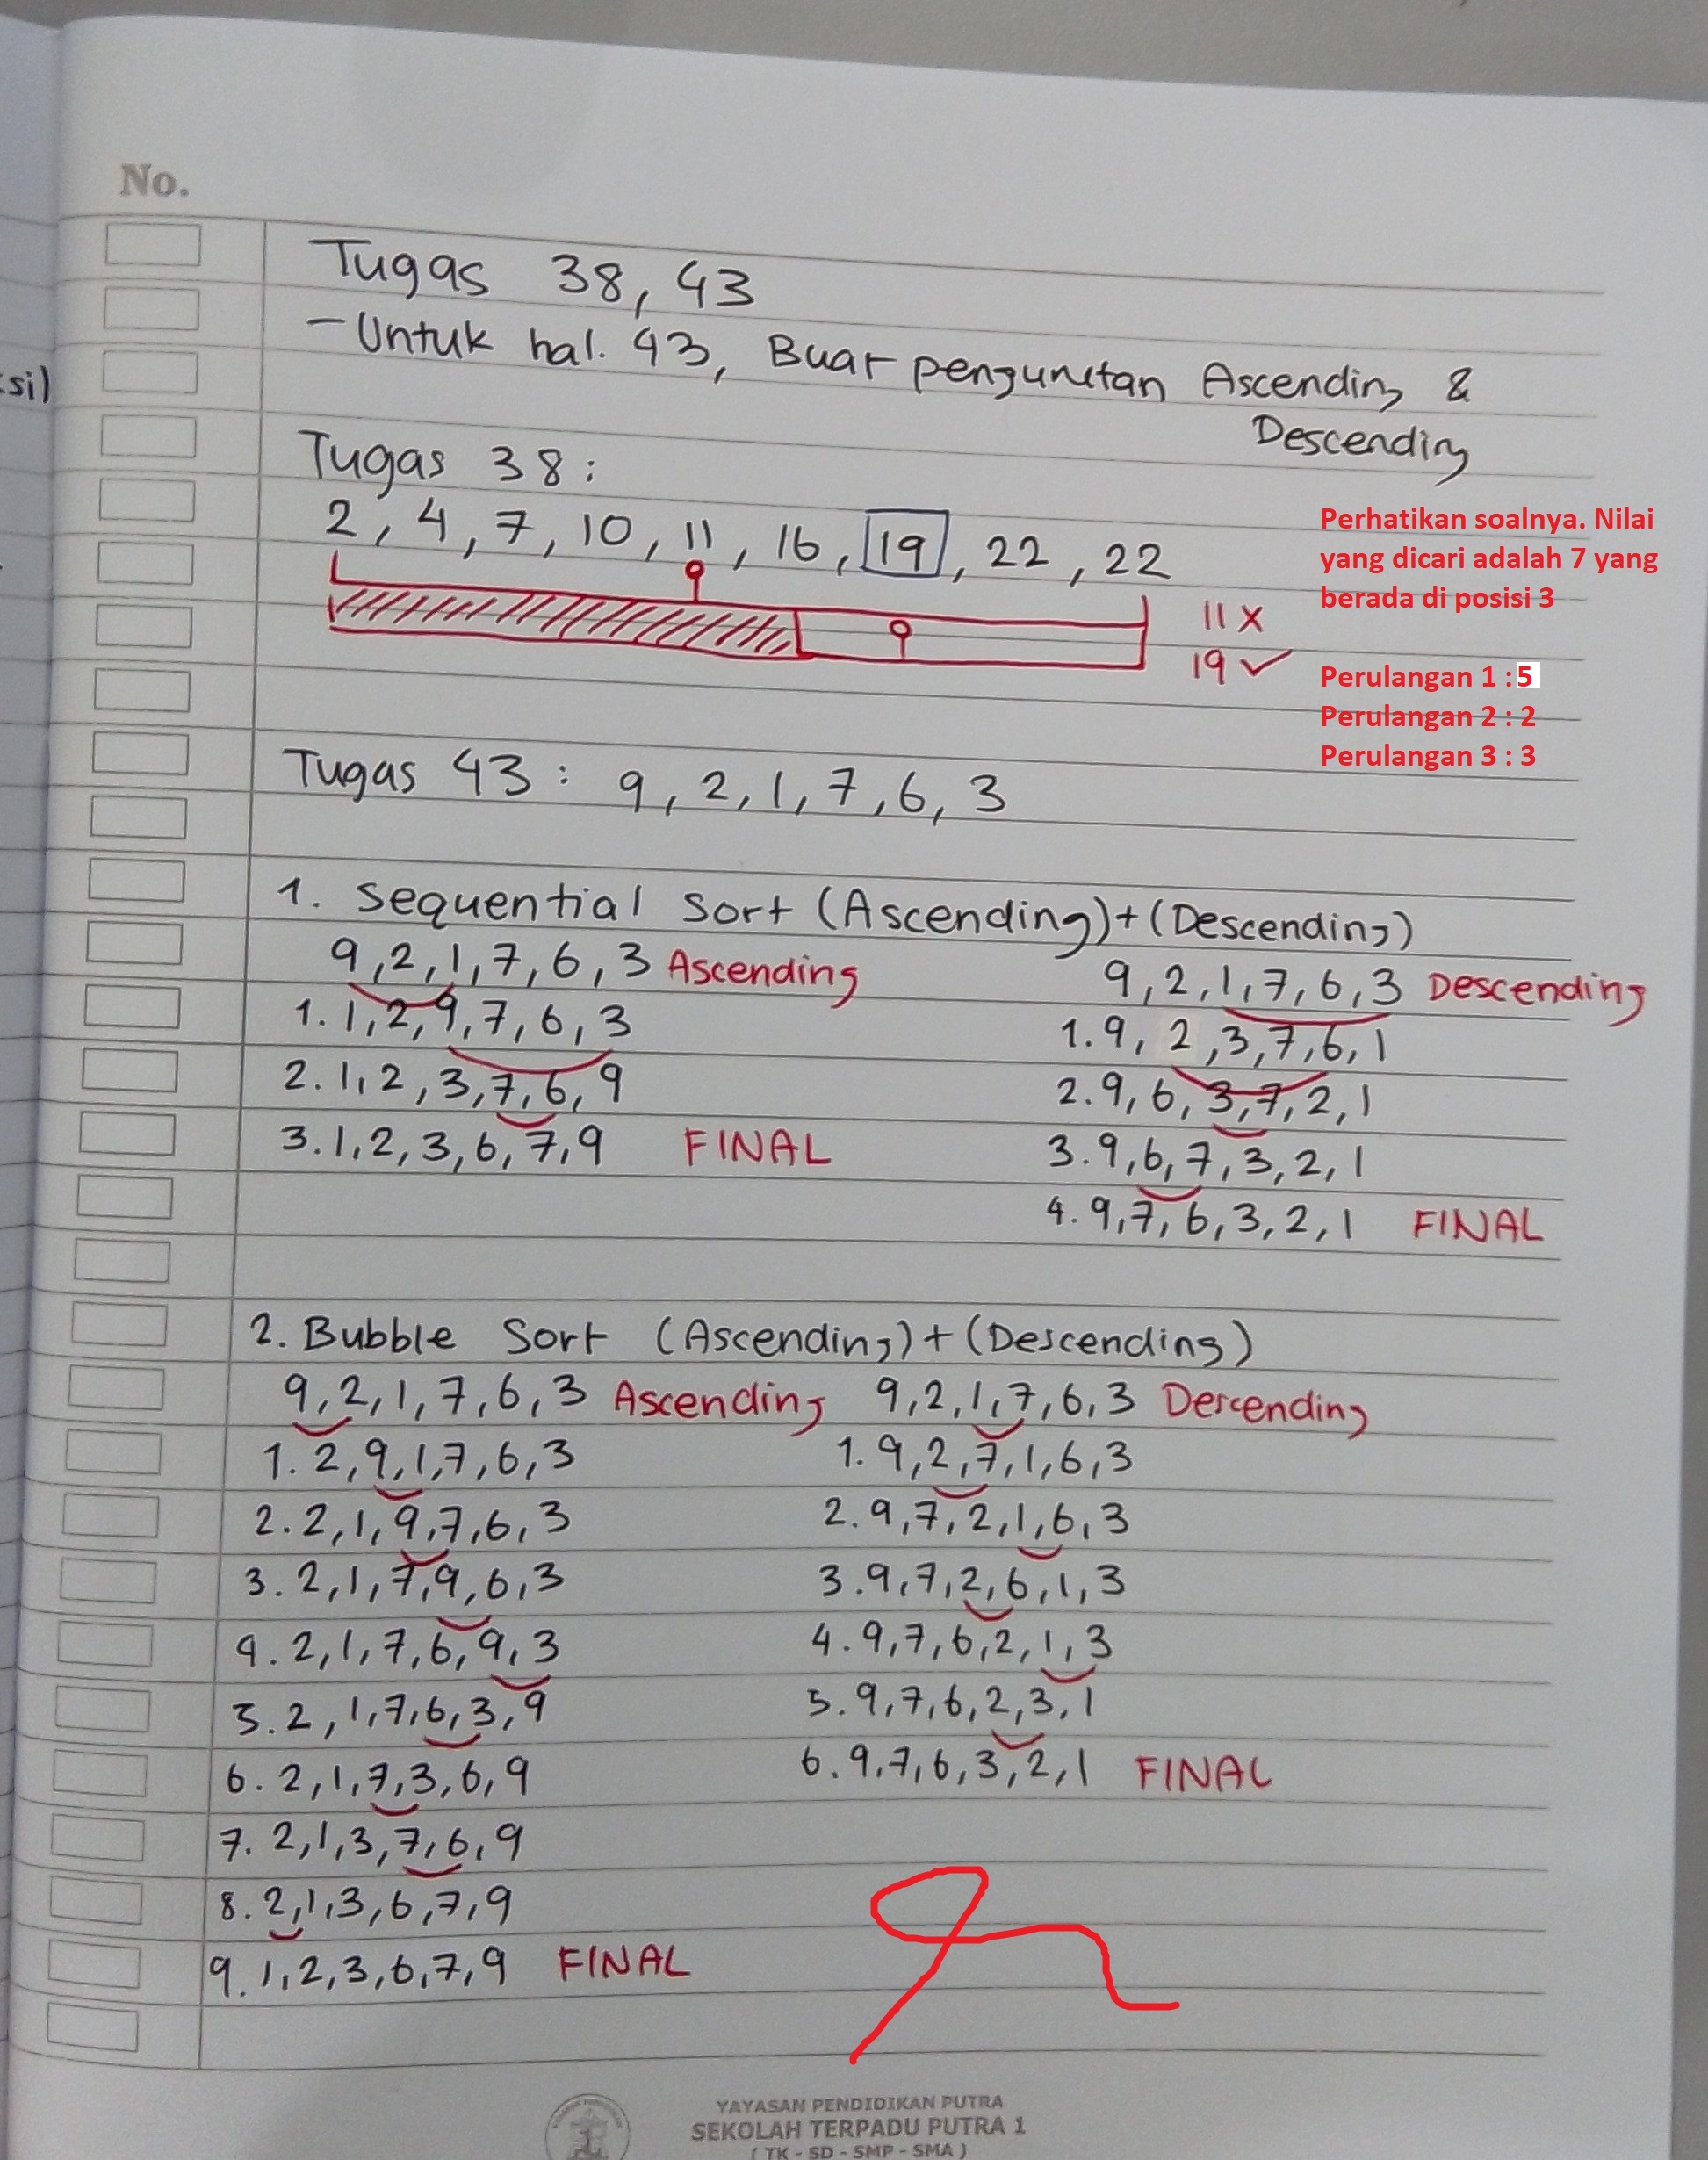 No.
si)
Tugas 38, 43
- Untuk hal. 43, Buat pengurutan Ascending &
Descending
Tugas 38 :
2, 4, 7, 10, 11, 16, 19, 22, 22
11 X
19 ✓
Perhatikan soalnya. Nilai
yang dicari adalah 7 yang
berada di posisi 3
Perulangan 1 : 5
Perulangan 2 : 2
Perulangan 3 : 3
Tugas 43 : 9, 2, 1, 7, 6, 3
1. Sequential Sort (Ascending)+(Descending)
9, 2, 1, 7, 6, 3 Ascending
1. 1, 2, 9, 7, 6, 3
2. 1, 2, 3, 7, 6, 9
3. 1, 2, 3, 6, 7, 9 FINAL
9, 2, 1, 7, 6, 3 Descending
1. 9, 2, 3, 7, 6, 1
2. 9, 6, 3, 7, 2, 1
3. 9, 6, 7, 3, 2, 1
4. 9, 7, 6, 3, 2, 1 FINAL
2. Bubble Sort (Ascending)+(Descending)
9, 2, 1, 7, 6, 3 Ascending
1. 2, 9, 1, 7, 6, 3
2. 2, 1, 9, 7, 6, 3
3. 2, 1, 7, 9, 6, 3
4. 2, 1, 7, 6, 9, 3
5. 2, 1, 7, 6, 3, 9
6. 2, 1, 7, 3, 6, 9
7. 2, 1, 3, 7, 6, 9
8. 2, 1, 3, 6, 7, 9
9. 1, 2, 3, 6, 7, 9 FINAL
9, 2, 1, 7, 6, 3 Descending
1. 9, 2, 7, 1, 6, 3
2. 9, 7, 2, 1, 6, 3
3. 9, 7, 2, 6, 1, 3
4. 9, 7, 6, 2, 1, 3
5. 9, 7, 6, 2, 3, 1
6. 9, 7, 6, 3, 2, 1 FINAL
YAYASAN PENDIDIKAN PUTRA
SEKOLAH TERPADU PUTRA 1
( TK - SD - SMP - SMA )